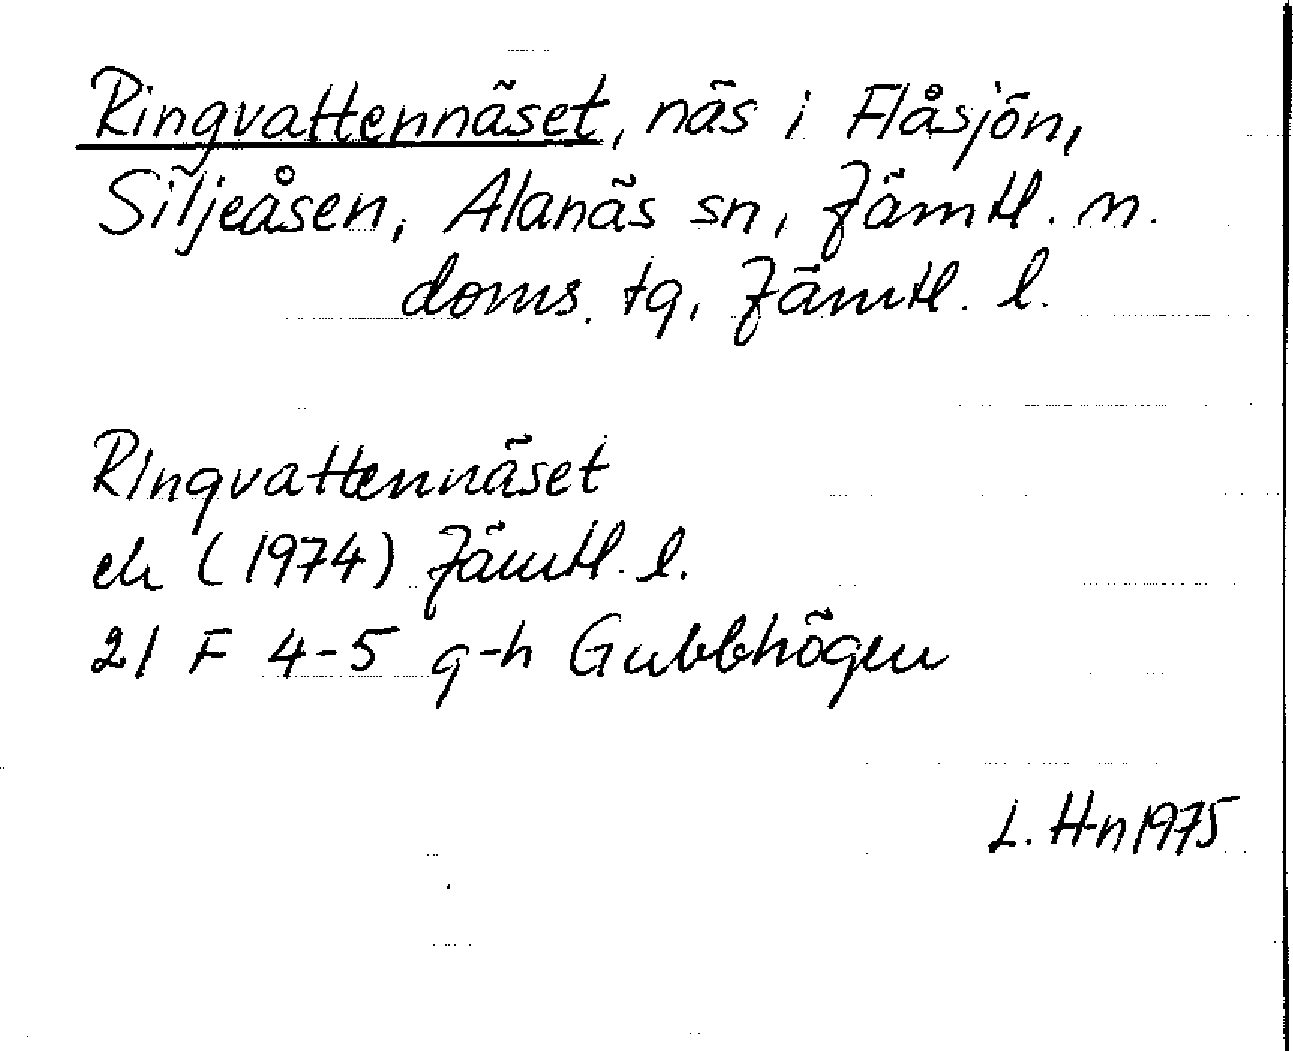 Ringvattennäset, näs i Flåsjön,
Siljeåsen, Alanäs sn, Jämtl. n.
doms. tg, Jämtl. l.
Ringvattennäset
ek (1974) Jämtl. l.
21 F 4-5 g-h Gubbhögen
L. Hn 1975